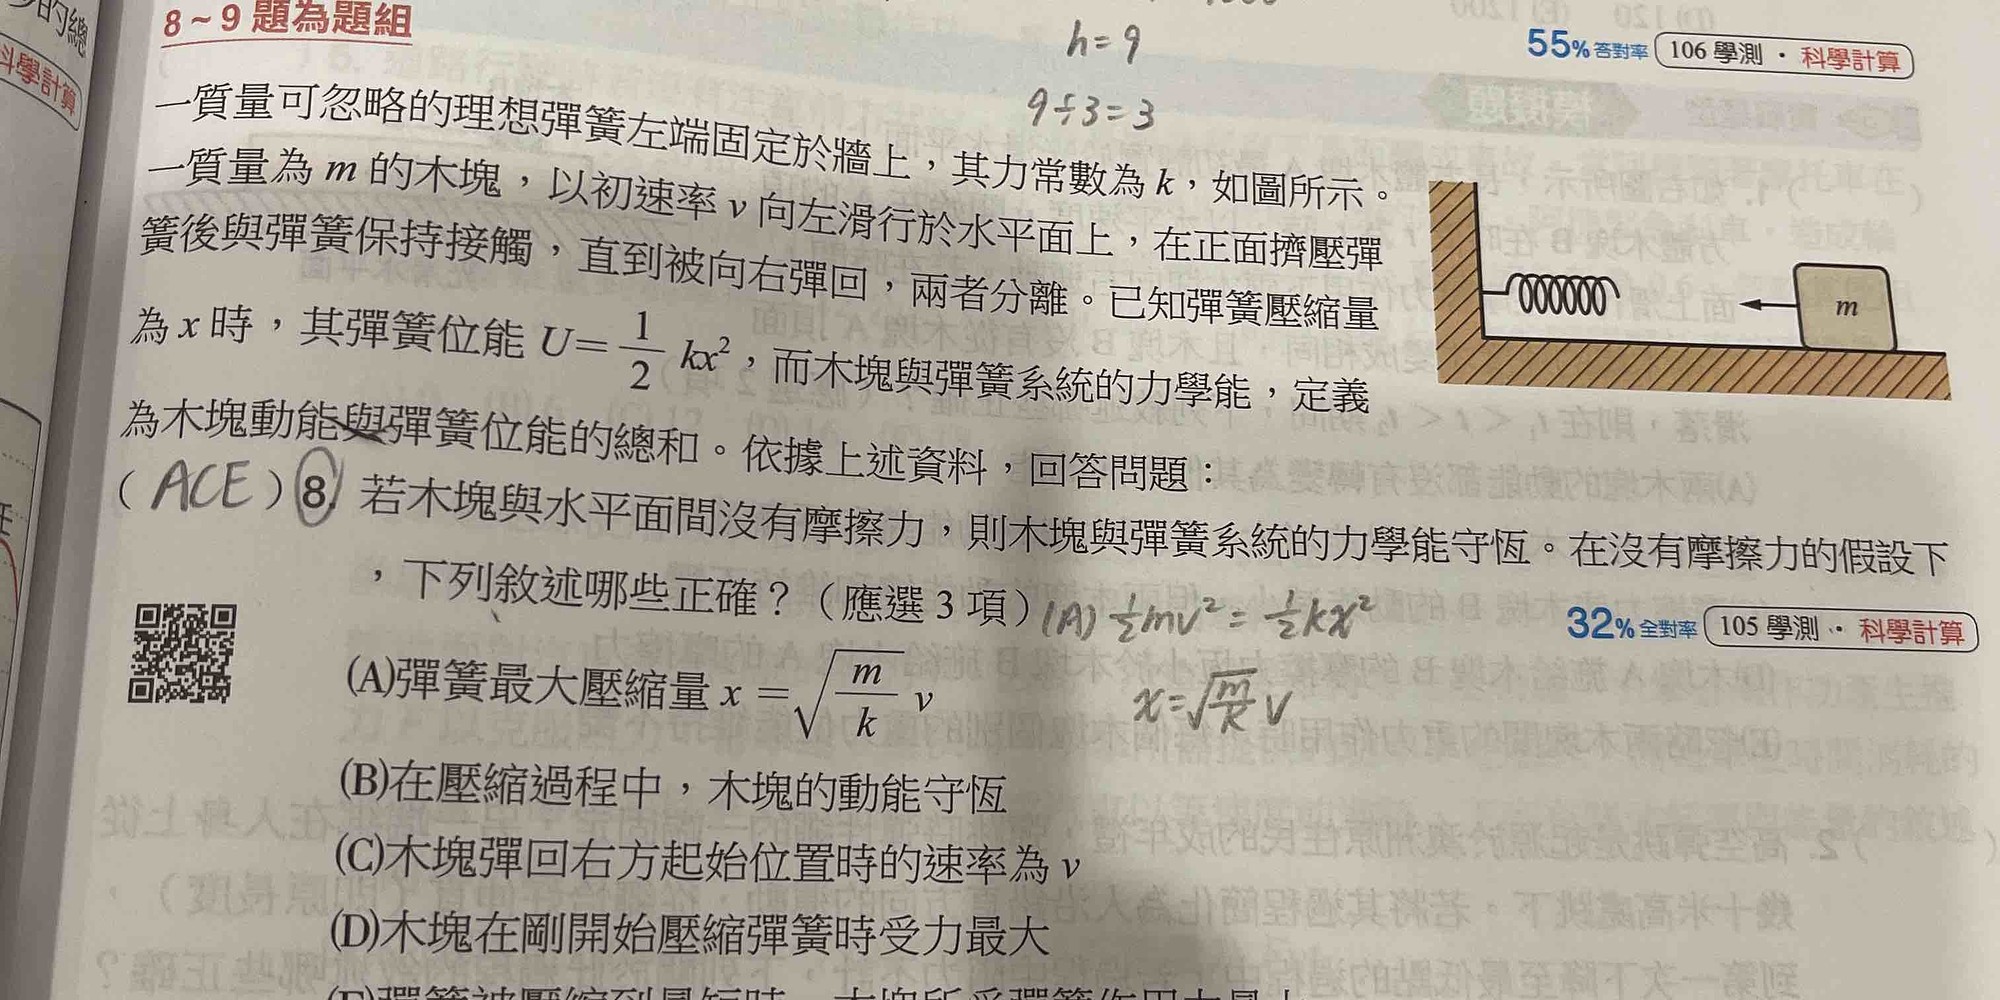 的總
科學計算
8~9題為題組
h=9
9÷3=3
55%答對率 106學測・科學計算
一質量可忽略的理想彈簧左端固定於牆上，其力常數為k，如圖所示。
一質量為m的木塊，以初速率v向左滑行於水平面上，在正面擠壓彈
簧後與彈簧保持接觸，直到被向右彈回，兩者分離。已知彈簧壓縮量
為x時，其彈簧位能U=1/2 kx²，而木塊與彈簧系統的力學能，定義
為木塊動能與彈簧位能的總和。依據上述資料，回答問題：
m
(ACE)8. 若木塊與水平面間沒有摩擦力，則木塊與彈簧系統的力學能守恆。在沒有摩擦力的假設下
，下列敘述哪些正確？（應選3項）
(A) ½mv²=½kx²
x=√(m/k) v
32%全對率 105學測・科學計算
(A)彈簧最大壓縮量x=√(m/k) v
(B)在壓縮過程中，木塊的動能守恆
(C)木塊彈回右方起始位置時的速率為v
(D)木塊在剛開始壓縮彈簧時受力最大